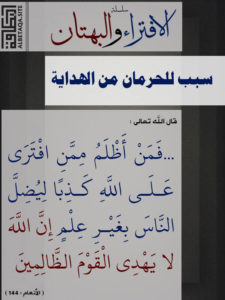 سلسلة
الافتراء والبهتان
البطاقة
ALBETAQA.SITE
سبب للحرمان من الهداية
قال الله تعالى :
...فَمَنْ أَظْلَمُ مِمَّنِ افْتَرَى
عَلَى اللَّهِ كَذِبًا لِيُضِلَّ
النَّاسَ بِغَيْرِ عِلْمٍ إِنَّ اللَّهَ
لا يَهْدِي الْقَوْمَ الظَّالِمِينَ
( الأنعام - 144 )